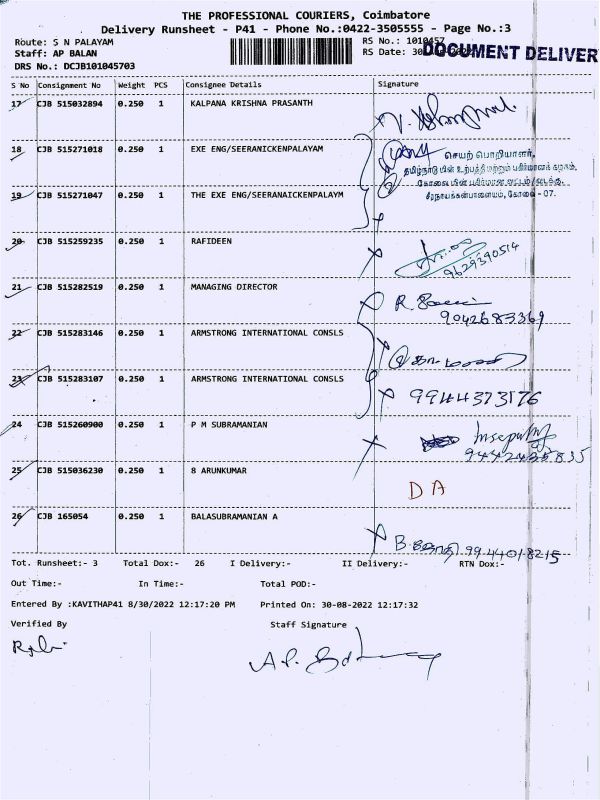 THE PROFESSIONAL COURIERS, Coimbatore
Delivery Runsheet - P41 - Phone No.:0422-3505555 - Page No.:3
Route: S N PALAYAM
RS No.: 1010457
Staff: AP BALAN
RS Date: 30
DOCUMENT DELIVER
DRS No.: DCJB101045703
S No Consignment No Weight PCS Consignee Details Signature
17 CJB 515032894 0.250 1 KALPANA KRISHNA PRASANTH
18 CJB 515271018 0.250 1 EXE ENG/SEERANICKENPALAYAM
செயற் பொறியாளர்,
தமிழ்நாடு மின் உற்பத்தி மற்றும் பகிர்மானக் கழகம்,
19 CJB 515271047 0.250 1 THE EXE ENG/SEERANAICKENPALAYM
சீரநாயக்கன்பாளையம், கோவை - 07.
20 CJB 515259235 0.250 1 RAFIDEEN
9629390514
21 CJB 515282519 0.250 1 MANAGING DIRECTOR
9042683369
22 CJB 515283146 0.250 1 ARMSTRONG INTERNATIONAL CONSLS
23 CJB 515283107 0.250 1 ARMSTRONG INTERNATIONAL CONSLS
9944373176
24 CJB 515260900 0.250 1 P M SUBRAMANIAN
25 CJB 515036230 0.250 1 S ARUNKUMAR
DA
26 CJB 165054 0.250 1 BALASUBRAMANIAN A
9944018215
Tot. Runsheet:- 3 Total Dox:- 26 I Delivery:- II Delivery:- RTN Dox:-
Out Time:- In Time:- Total POD:-
Entered By :KAVITHAP41 8/30/2022 12:17:20 PM Printed On: 30-08-2022 12:17:32
Verified By Staff Signature